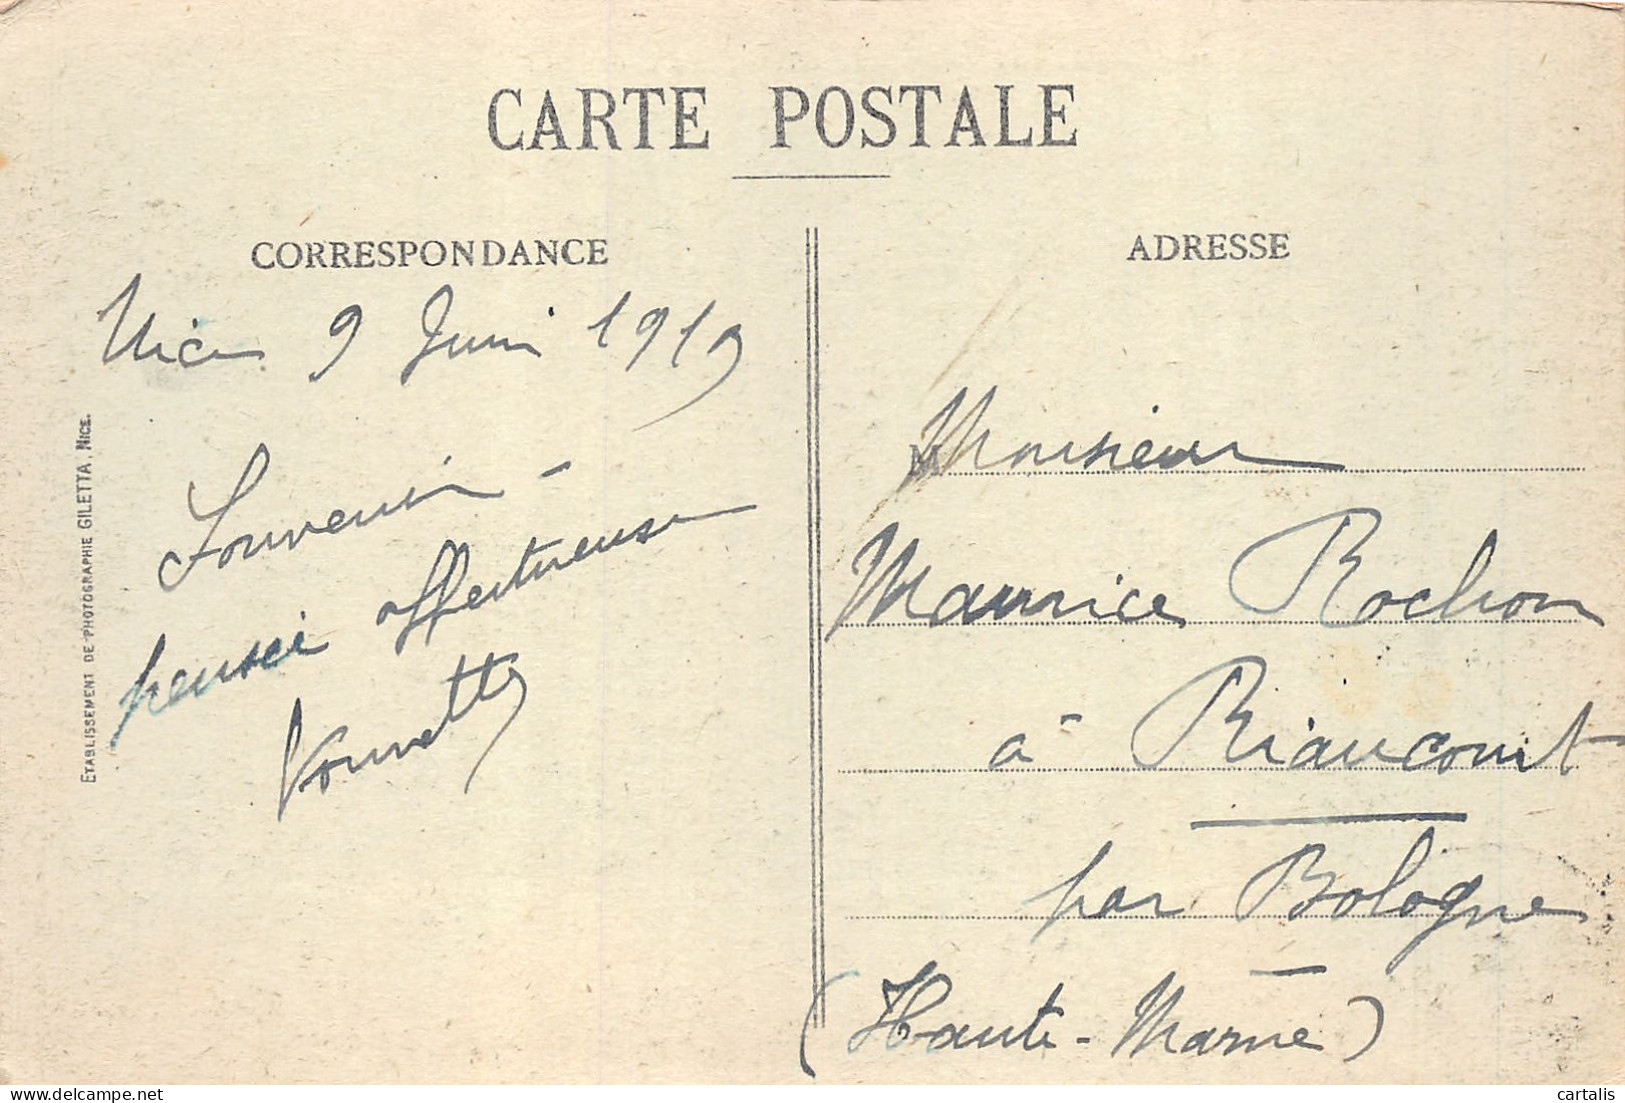 CARTE POSTALE
CORRESPONDANCE
ADRESSE
Nice 9 Juin 1919
Souvenir -
pensée affectueuse
ETABLISSEMENT DE PHOTOGRAPHIE GILETTA, NICE.
Monsieur
Maurice Rochon
à Riaucourt
par Bologne
(Haute-Marne)
cartalis
delcampe.net